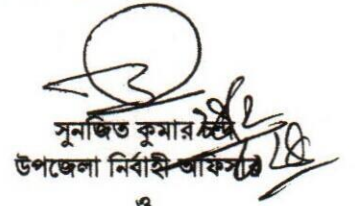 সুনজিত কুমার চন্দ
উপজেলা নির্বাহী অফিসার
ও